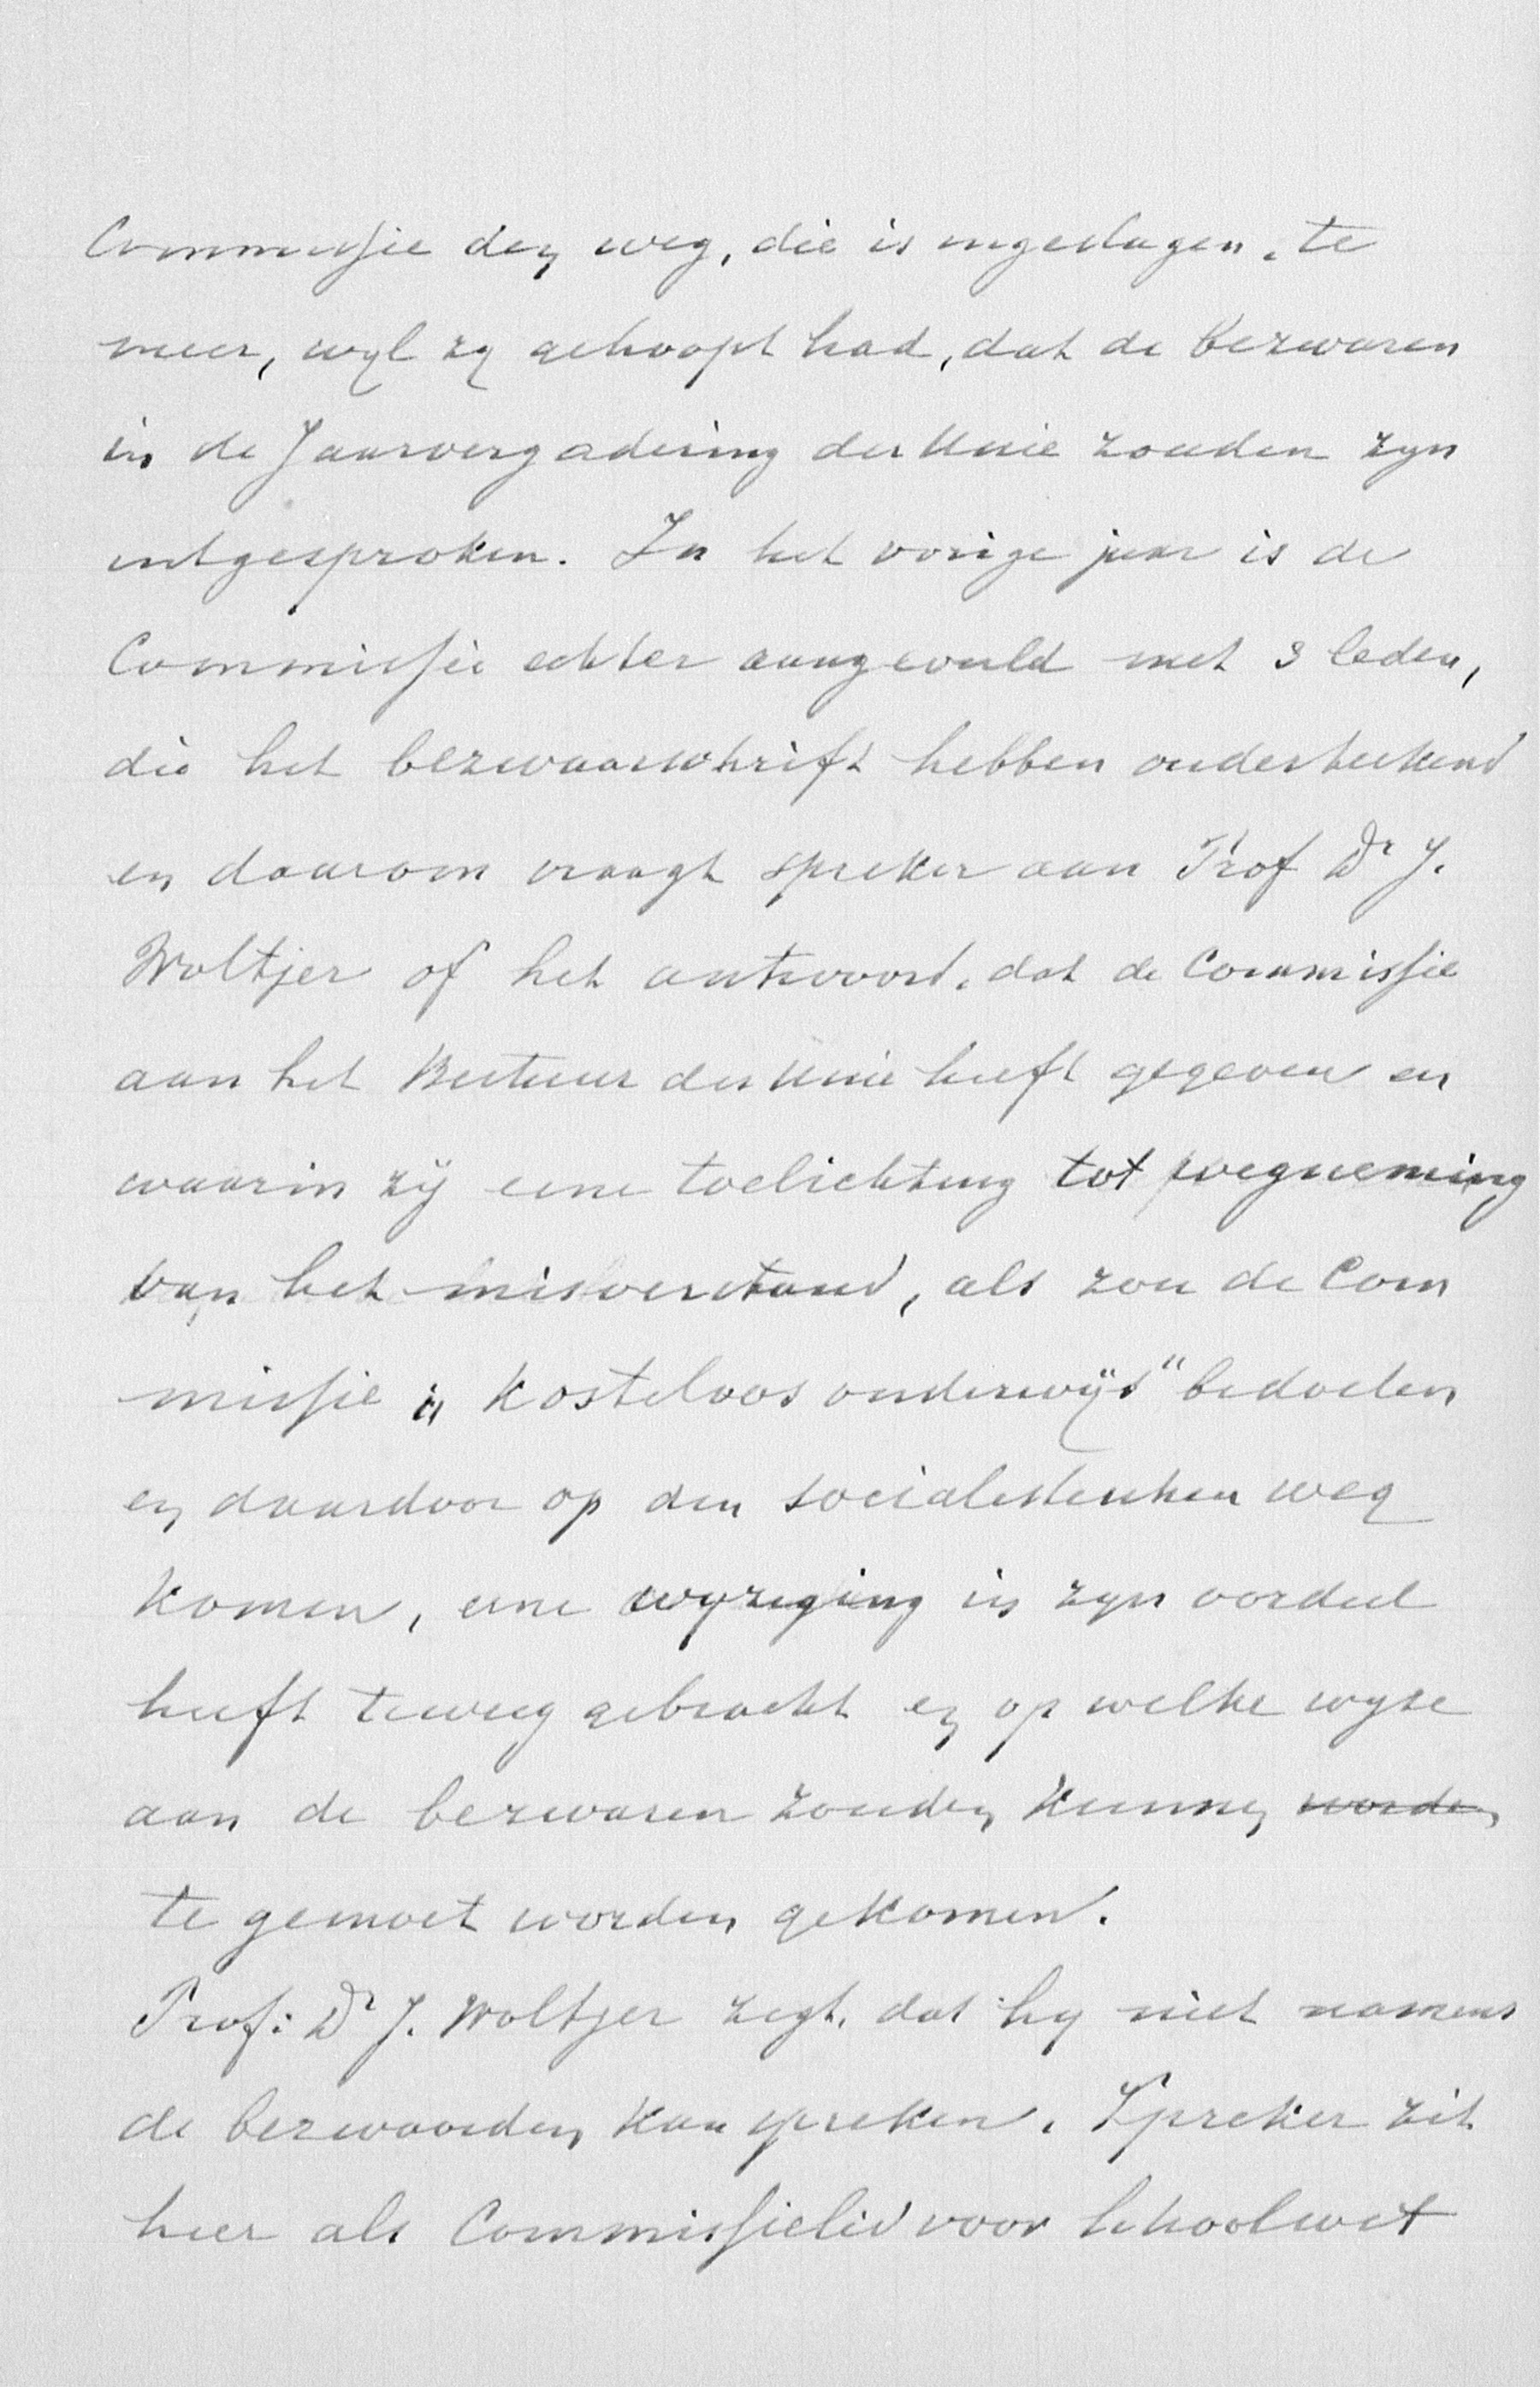 Commissie den weg, die is ingeslagen, te
meer, wyl zy gehoopt had, dat de bezwaren
in de Jaarvergadering der Unie zouden zyn
uitgesproken. In het vorige jaar is de
Commissie echter aangevuld met 3 leden,
die het bezwaarschrift hebben onderteekend
en daarom vraagt spreker aan Prof Dr J.
Woltjer of het antwoord, dat de Commissie
aan het Bestuur der Unie heeft gegeven en
waarin zij eene toelichting tot wegneming
van het misverstand, als zou de Com
missie „kosteloos onderwijs" bedoelen
en daardoor op den socialistischen weg
komen, eene wyziging in zyn oordeel
heeft teweeg gebracht en op welke wyze
aan de bezwaren zouden kunnen worden
te gemoet worden gekomen.
Prof: Dr J. Woltjer zegt, dat hy niet namens
de bezwaarden kan spreken. Spreker zit
hier als Commissielid voor Schoolwet